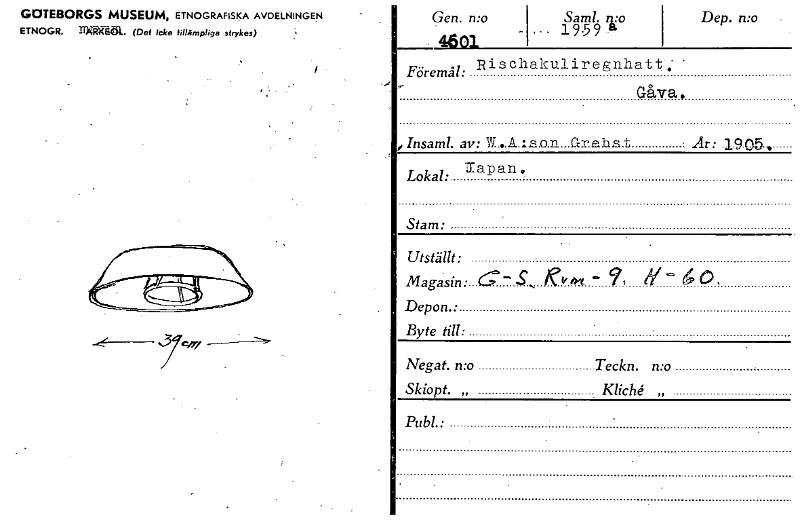 GÖTEBORGS MUSEUM, ETNOGRAFISKA AVDELNINGEN
ETNOGR. ARKEOL. (Det icke tillämpliga strykes)
39 cm
Gen. n:o Saml. n:o Dep. n:o
4601 1959 a
Föremål: Rischakuliregnhatt.
Gåva.
Insaml. av: W.A:son Grebst År: 1905.
Lokal: Japan.
Stam:
Utställt:
Magasin: G-S. Rum-9. H-60.
Depon.:
Byte till:
Negat. n:o Teckn. n:o
Skiopt. „ Kliché „
Publ.: